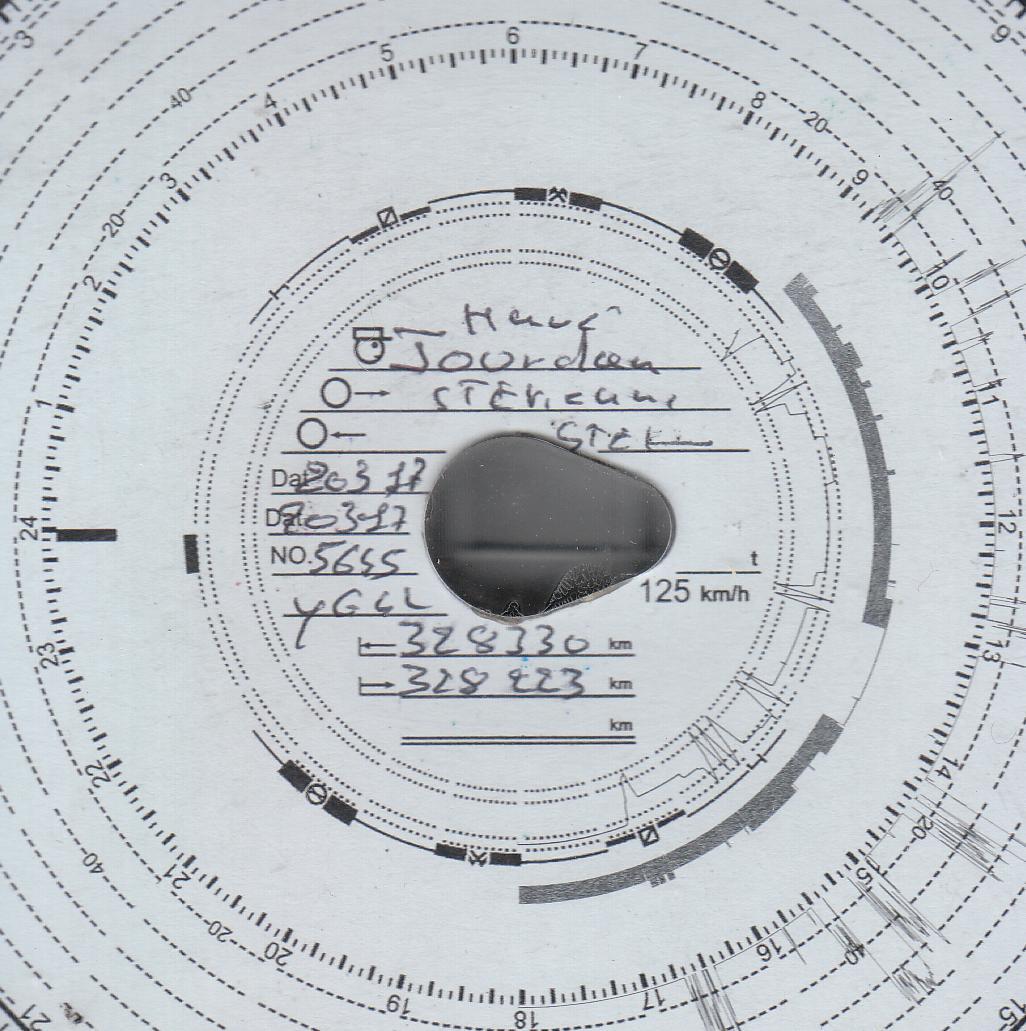 Hervé
Jourdan
STEL
Dat 20317
Dat 20317
NO. 5655
t
125 km/h
328330 km
328 223 km
km
1
2
3
4
5
6
7
8
9
10
11
12
13
14
15
16
17
18
19
20
21
22
23
24
20
40
20
40
20
40
20
40
3
9
15
21